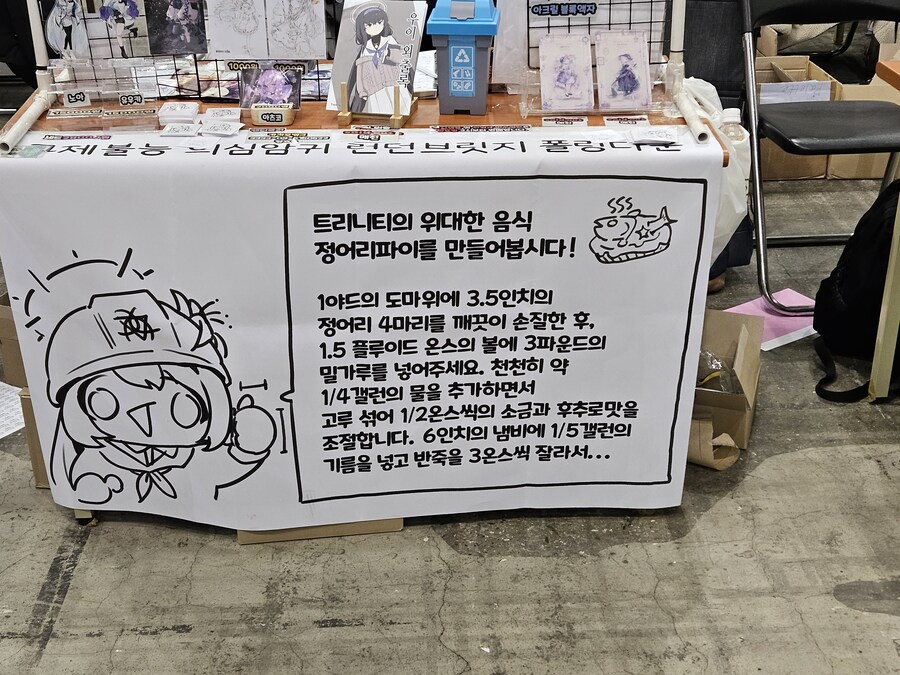 아크릴 블록액자
우이 외주북
노아
유우카
아츠코
구제불능 의심암귀 런던브릿지 폴링다운
트리니티의 위대한 음식
정어리파이를 만들어봅시다!
1야드의 도마위에 3.5인치의
정어리 4마리를 깨끗이 손질한 후,
1.5 플루이드 온스의 볼에 3파운드의
밀가루를 넣어주세요. 천천히 약
1/4갤런의 물을 추가하면서
고루 섞어 1/2온스씩의 소금과 후추로맛을
조절합니다. 6인치의 냄비에 1/5갤런의
기름을 넣고 반죽을 3온스씩 잘라서...